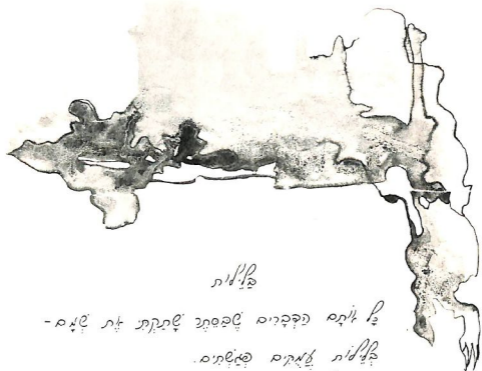 בַּלֵּילוֹת
כָּל אוֹתָם הַדְּבָרִים שֶׁבַּסֵּתֶר שָׁתַקְתְּ אֶת שְׁמָם-
בְּלֵילוֹת עֲמֻקִּים פְּגַשְׁתִּים.